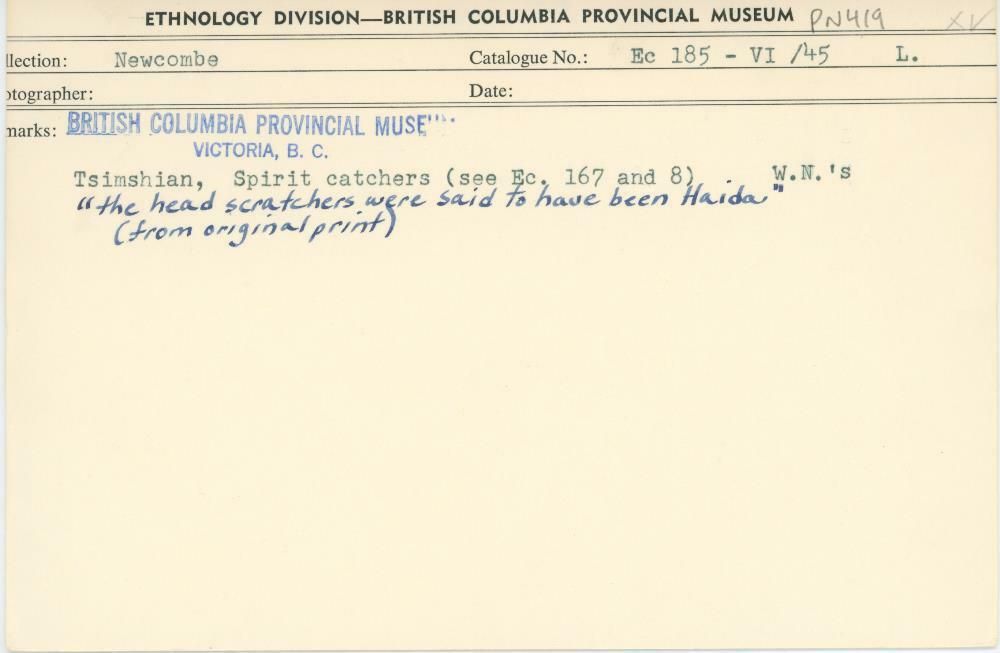 ETHNOLOGY DIVISION—BRITISH COLUMBIA PROVINCIAL MUSEUM PN419 XV
llection: Newcombe Catalogue No.: Ec 185 - VI /45 L.
otographer: Date:
marks: BRITISH COLUMBIA PROVINCIAL MUSE
VICTORIA, B. C.
Tsimshian, Spirit catchers (see Ec. 167 and 8) . W.N.'s
"the head scratchers were said to have been Haida"
(from original print)